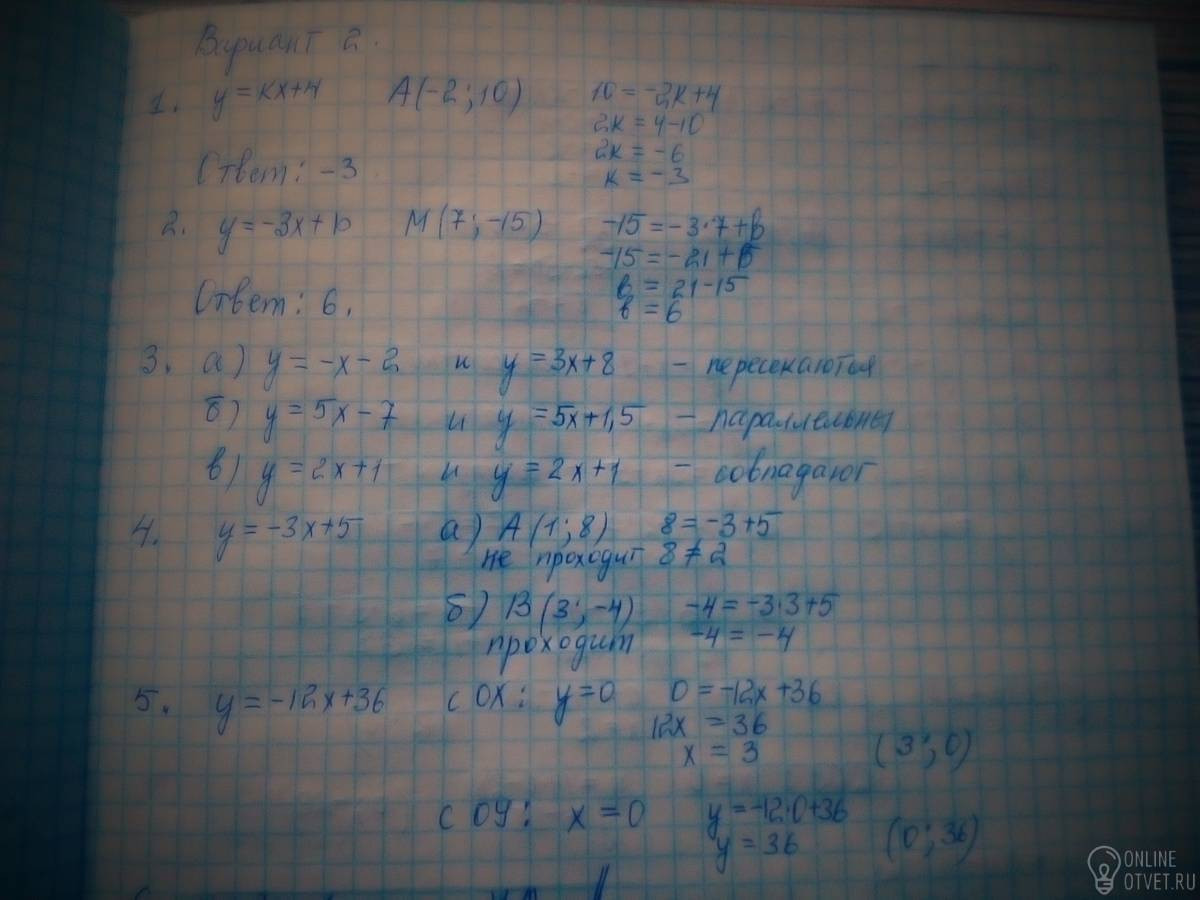 Вариант 2.
1. y=kx+4 A(-2;10) 10=-2k+4
2k=4-10
2k=-6
Ответ: -3 k=-3
2. y=-3x+b M(7;-15) -15=-3·7+b
-15=-21+b
b=21-15
Ответ: 6. b=6
3. а) y=-x-2 и y=3x+8 - пересекаються
б) y=5x-7 и y=5x+1,5 - параллельны
в) y=2x+1 и y=2x+1 - совпадают
4. y=-3x+5 а) A(1;8) 8=-3+5
не проходит 8≠2
б) B(3;-4) -4=-3·3+5
проходит -4=-4
5. y=-12x+36 с OX: y=0 0=-12x+36
12x=36
x=3 (3;0)
с OY: x=0 y=-12·0+36
y=36 (0;36)
ONLINE
OTVET.RU